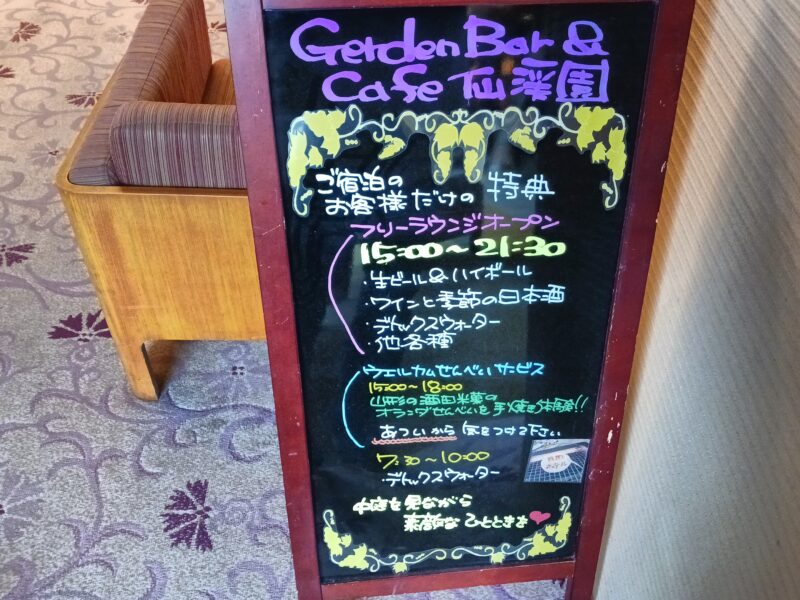 Gerden Bar &
Cafe 仙渓園
ご宿泊の
お客様だけの 特典
フリーラウンジオープン
15:00～21:30
・生ビール&ハイボール
・ワインと季節の日本酒
・デトックスウォーター
・他各種
ウェルカムせんべいサービス
15:00～18:00
山形の酒田米菓の
オランダせんべいを手焼き体験!!
あついから 気をつけて下さい
7:30～10:00
・デトックスウォーター
中庭を見ながら
素敵なひとときを